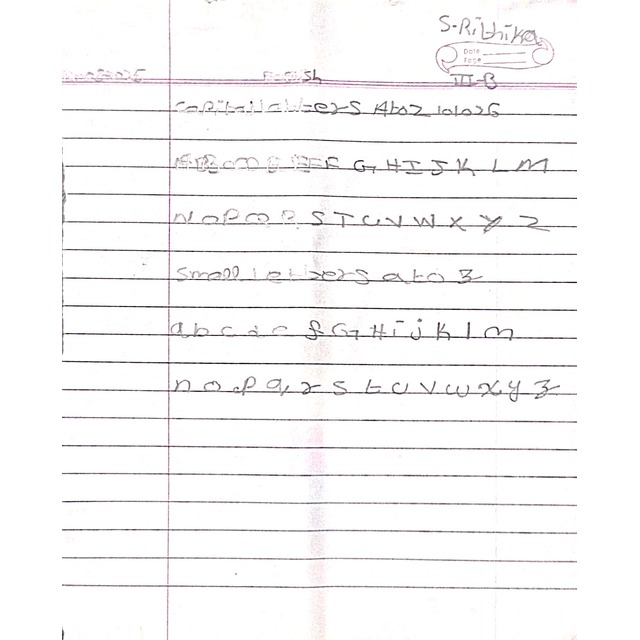 S-Rithika
Date
Page
English
III-B
Capital letters A to Z
G H I J K L M
N O P Q R S T U V W X Y Z
Small letters a to z
a b c d e f G H i j k l m
n o p q r s t u v w x y z